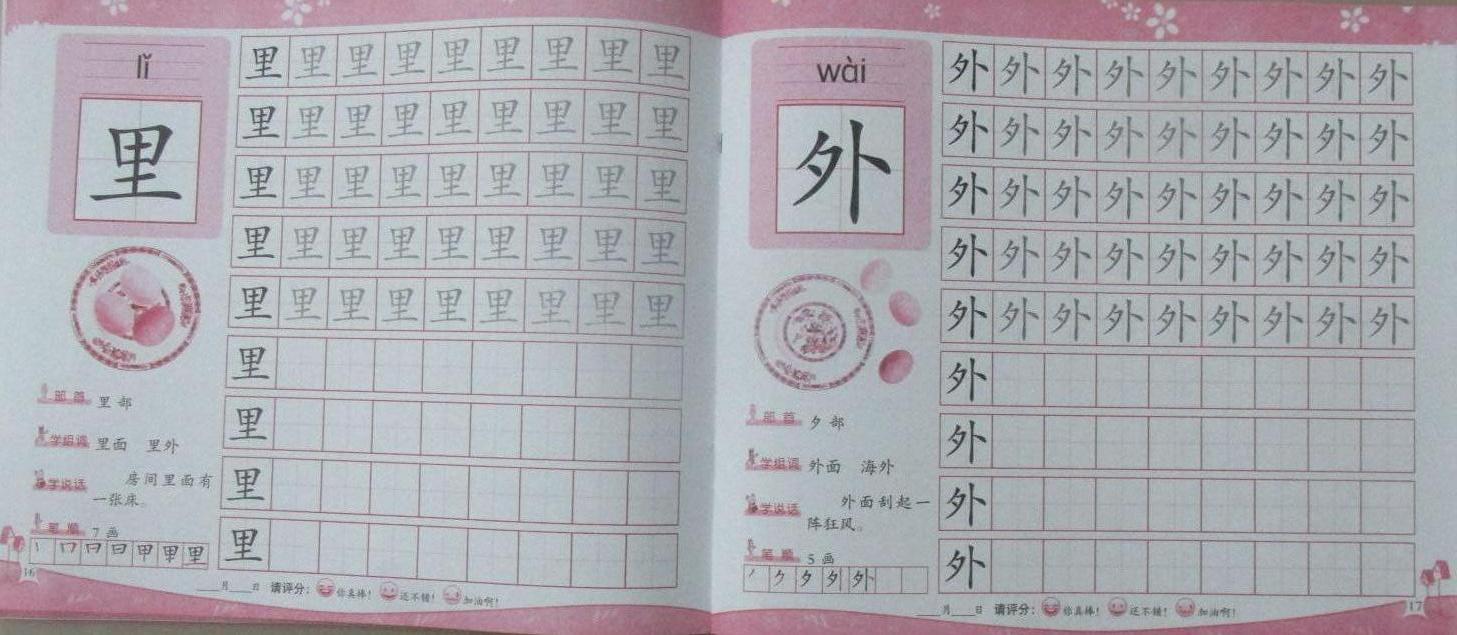 lǐ
里
里 里 里 里 里 里 里 里 里
里 里 里 里 里 里 里 里 里
里 里 里 里 里 里 里 里 里
里 里 里 里 里 里 里 里 里
里 里 里 里 里 里 里 里 里
里
里
里
里
部首 里部
学组词 里面 里外
学说话 房间里面有
一张床。
笔顺 7画
丨 口 曰 日 甲 甲 里
16
月 日 请评分: 你真棒! 还不错! 加油啊!
wài
外
外 外 外 外 外 外 外 外 外
外 外 外 外 外 外 外 外 外
外 外 外 外 外 外 外 外 外
外 外 外 外 外 外 外 外 外
外 外 外 外 外 外 外 外 外
外
外
外
外
部首 夕部
学组词 外面 海外
学说话 外面刮起一
阵狂风。
笔顺 5画
丿 ク 夕 夘 外
月 日 请评分: 你真棒! 还不错! 加油啊!
17